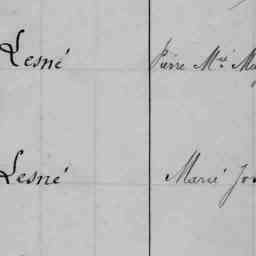 Lesné Pierre Mie Ma
Lesné Marie Jos